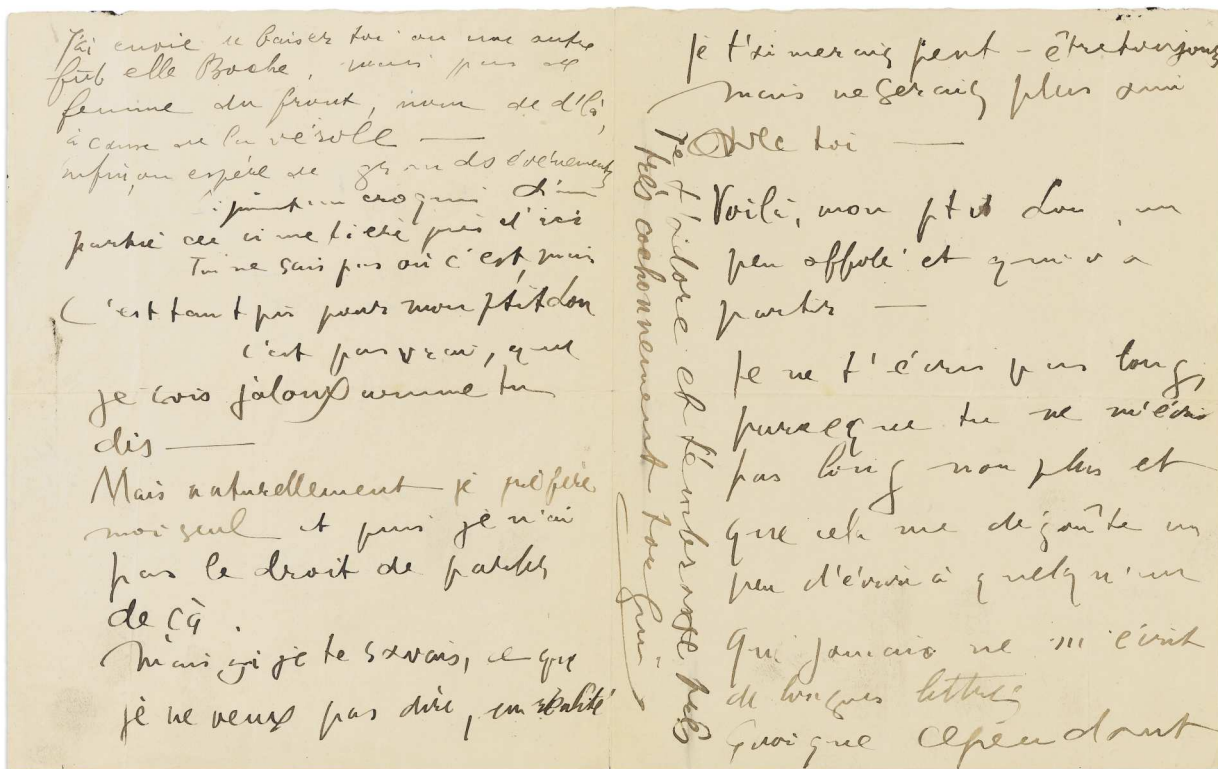 J'ai envie de baiser toi ou une autre
fut elle Boche, mais pas de
femme du front, nom de d'là,
à cause de la vérolle —
enfin, on espère de grands événements
ci joint un croquis d'une
partie du cimetière près d'ici
Tu ne sais pas où c'est, mais
C'est tant pis pour mon ptit Lou
c'est pas vrai, que
je sois jaloux comme tu
dis —
Mais naturellement je préfère
moi seul et puis je n'ai
pas le droit de parler
de çà.
Mais si je te savais, ce que
je ne veux pas dire, en réalité
je t'aimerais peut-être toujours
mais ne serais plus ami
avec toi —
Voilà, mon ptit Lou, un
peu affolé et qui va
partir —
Je ne t'écris pas long,
parceque tu ne m'écris
pas long non plus et
que cela me dégoûte un
peu d'écrire à quelqu'un
qui jamais ne m'écrit
de longues lettres
Quoique cependant
Je t'adore et t'embrasse très
très cochonnement ton Gui